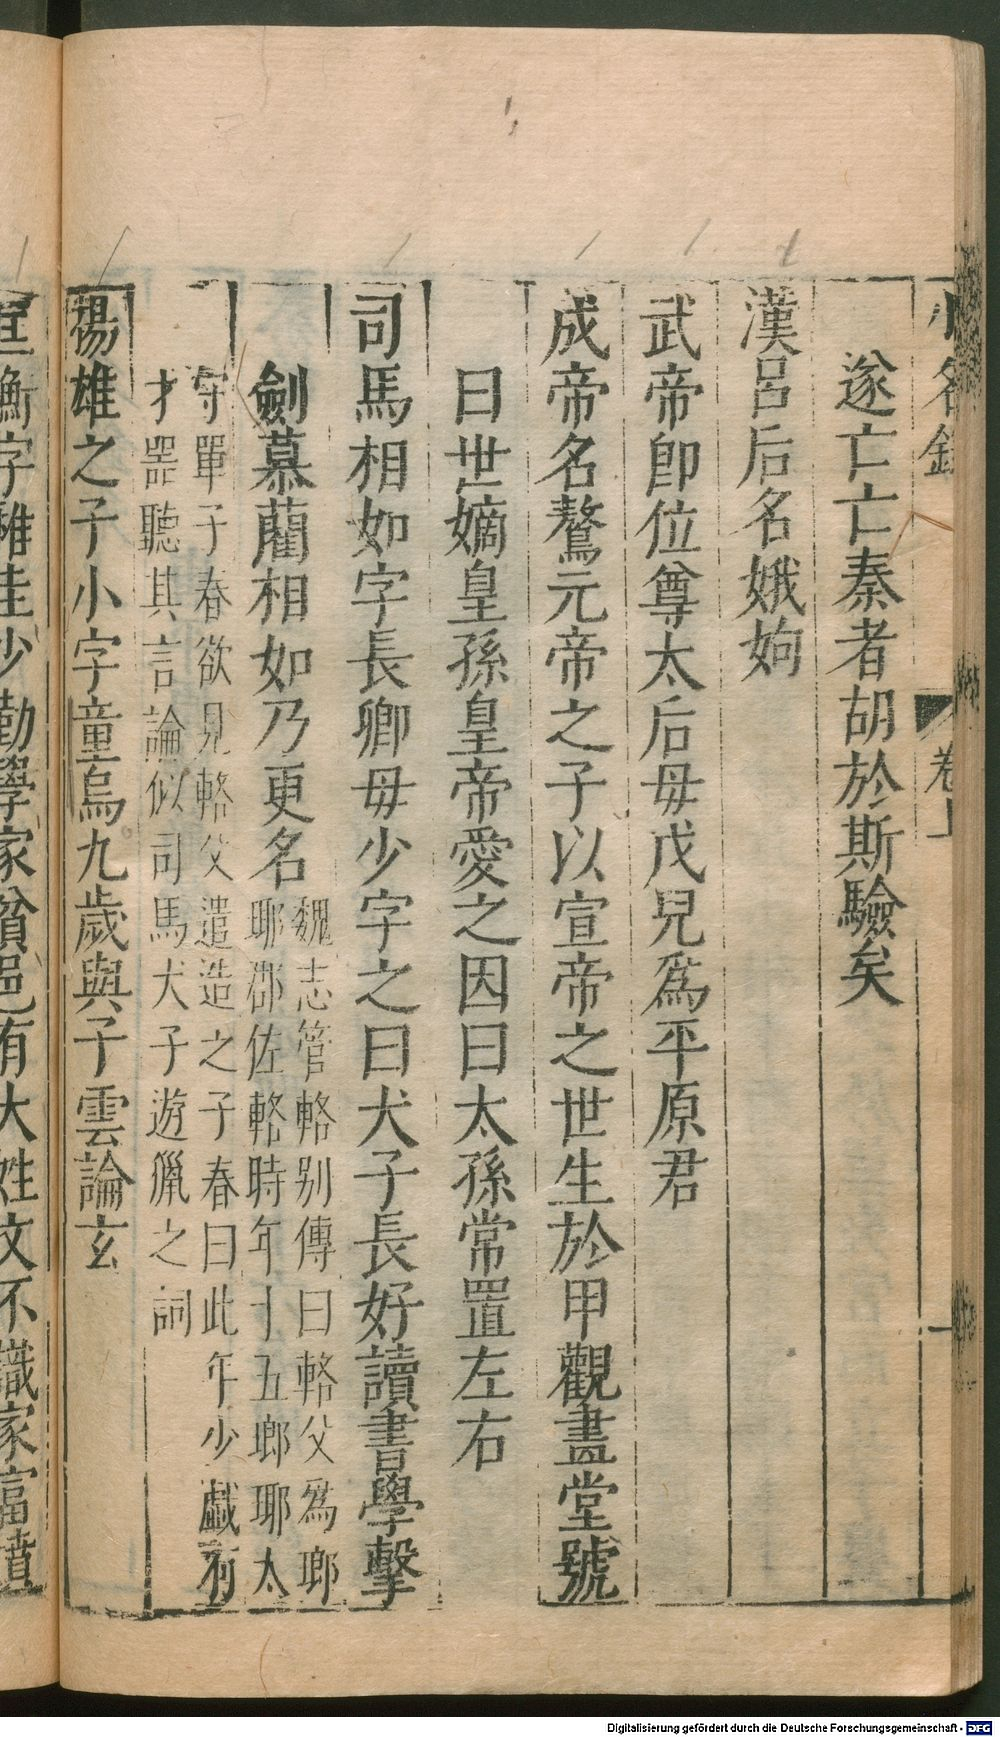 小名錄 卷上
遂亡亡秦者胡於斯驗矣
漢呂后名娥姁
武帝卽位尊太后母戊兒爲平原君
成帝名驁元帝之子以宣帝之世生於甲觀畫堂號
曰世嫡皇孫皇帝愛之因曰太孫常置左右
司馬相如字長卿毋少字之曰犬子長好讀書學擊
劍慕藺相如乃更名
魏志管輅别傳曰輅父爲瑯
耶郡佐輅時年十五瑯耶太
守單子春欲見輅父遣造之子春曰此年少戲有
才器聽其言論似司馬犬子遊獵之詞
揚雄之子小字童烏九歲與子雲論玄
匡衡字稚圭少勤學家貧邑有大姓文不識家富墳
Digitalisierung gefördert durch die Deutsche Forschungsgemeinschaft - DFG